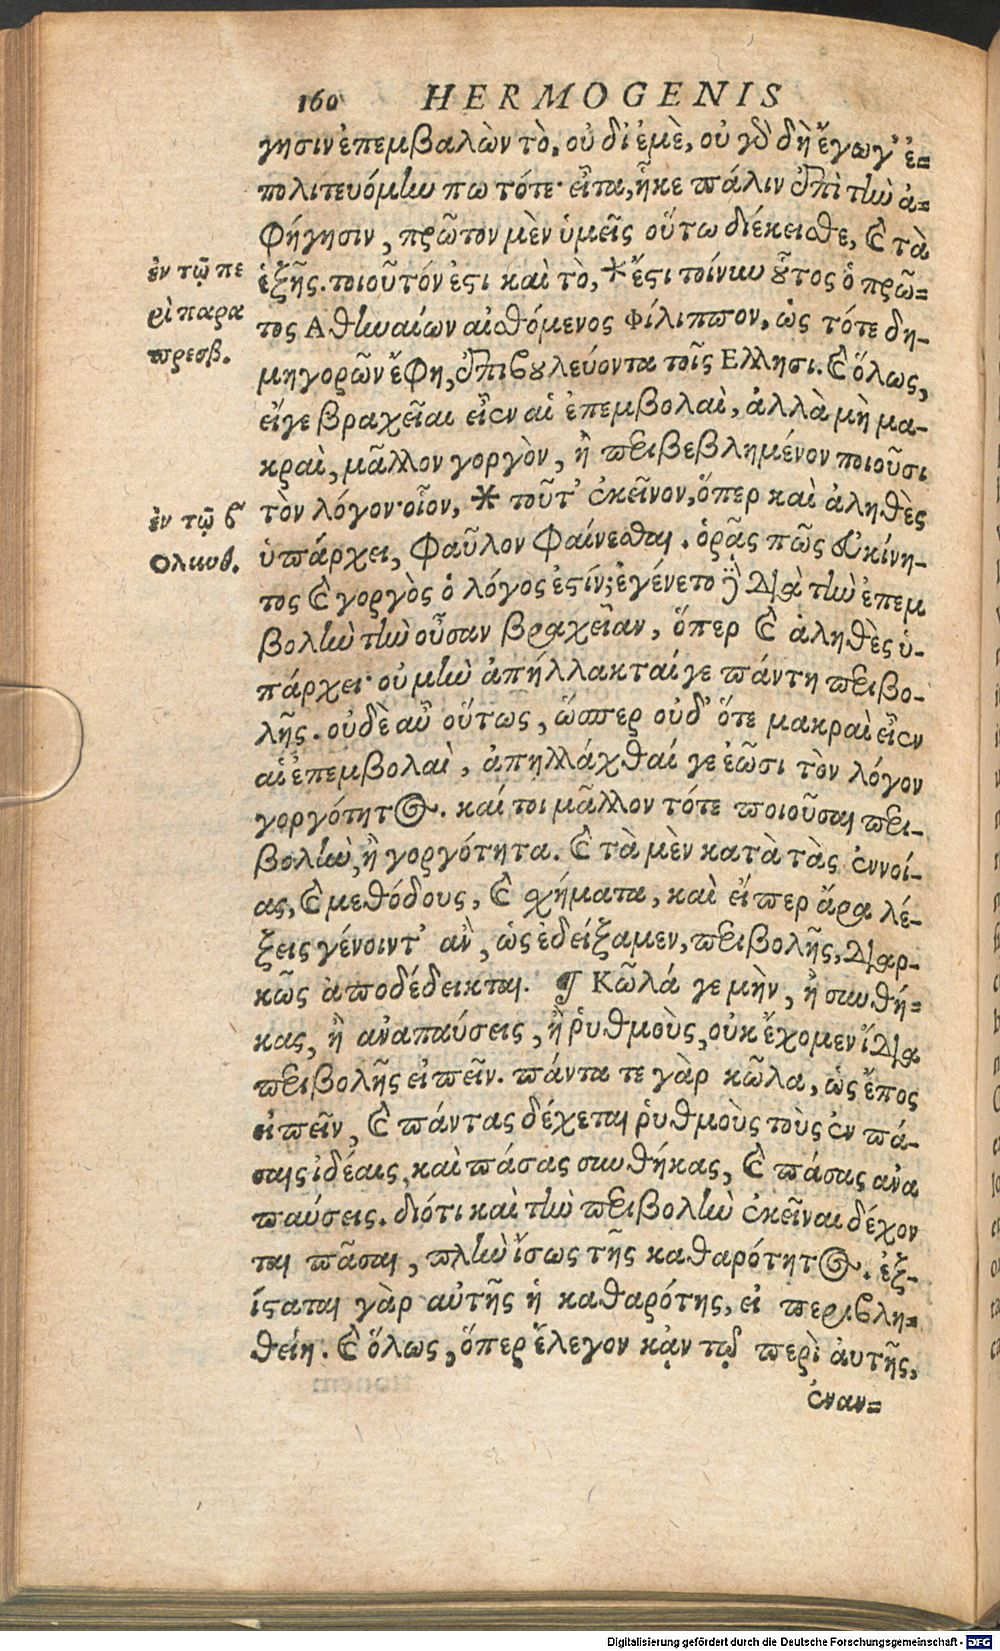 160 HERMOGENIS
γησιν ἐπεμβαλὼν τὸ, οὐ δἰ ἐμὲ, οὐ γδ δὴ ἔγωγ' ἐ=
πολιτευόμην πω τότε· εἶτα, ἧκε πάλιν ἐπὶ τὴν ἀ=
φήγησιν, πρῶτον μὲν ὑμεῖς οὕτω διέκειϑε, καὶ τὰ
ἐν τῷ πε
ρὶ παρα
πρεσβ.
ἑξῆς. τοιοῦτόν ἐστι καὶ τὸ, * ἔστι τοίνυν οὗτος ὁ πρῶ=
τος Αθηναίων αἰσθόμενος Φίλιππον, ὡς τότε δη-
μηγορῶν ἔφη, ἐπιβουλεύοντα τοῖς Ελλησι. καὶ ὅλως,
εἴγε βραχεῖαι εἶεν αἱ ἐπεμβολαὶ, ἀλλὰ μὴ μα-
κραὶ, μᾶλλον γοργὸν, ἢ περιβεβλημένον ποιοῦσι
ἐν τῷ β
Ολυνθ.
τὸν λόγον· οἷον, * τοῦτ' ἐκεῖνον, ὅπερ καὶ ἀληθὲς
ὑπάρχει, φαῦλον φαίνεσθαι. ὁρᾷς πῶς εὐκίνη-
τος καὶ γοργὸς ὁ λόγος ἐστίν; ἐγένετο δὲ διὰ τὴν ἐπεμ
βολὴν τὴν οὖσαν βραχεῖαν, ὅπερ καὶ ἀληθὲς ὑ-
πάρχει· οὐ μὴν ἀπήλλακταί γε πάντη περιβο-
λῆς. οὐδὲ αὖ οὕτως, ὥσπερ οὐδ' ὅτε μακραὶ εἶεν
αἱ ἐπεμβολαὶ, ἀπηλλάχθαί γε ἐῶσι τὸν λόγον
γοργότητος. καί τοι μᾶλλον τότε ποιοῦσαι περι-
βολὴν, ἢ γοργότητα. καὶ τὰ μὲν κατὰ τὰς ἐννοί-
ας, καὶ μεθόδους, καὶ σχήματα, καὶ εἴπερ ἄρα λέ-
ξεις γένοιντ' ἂν, ὡς ἐδείξαμεν, περιβολῆς, διαρ-
κῶς ἀποδέδεικται. ¶ Κῶλά γε μὴν, ἢ συνθή=
κας, ἢ ἀναπαύσεις, ἢ ῥυθμοὺς, οὐκ ἔχομεν ἴδια
περιβολῆς εἰπεῖν. πάντα τε γὰρ κῶλα, ὡς ἔπος
εἰπεῖν, καὶ πάντας δέχεται ῥυθμοὺς τοὺς ἐν πά-
σαις ἰδέαις, καὶ πάσας συνθήκας, καὶ πάσας ἀνα
παύσεις. διότι καὶ τὴν περιβολὴν ἐκεῖναι δέχον
ται πᾶσαι, πλὴν ἴσως τῆς καθαρότητος. ἐξ-
ίσταται γὰρ αὐτῆς ἡ καθαρότης, εἰ περιβλη=
θείη. καὶ ὅλως, ὅπερ ἔλεγον κἀν τῷ περὶ ἀυτῆς,
ἐναν=
Digitalisierung gefördert durch die Deutsche Forschungsgemeinschaft - DFG